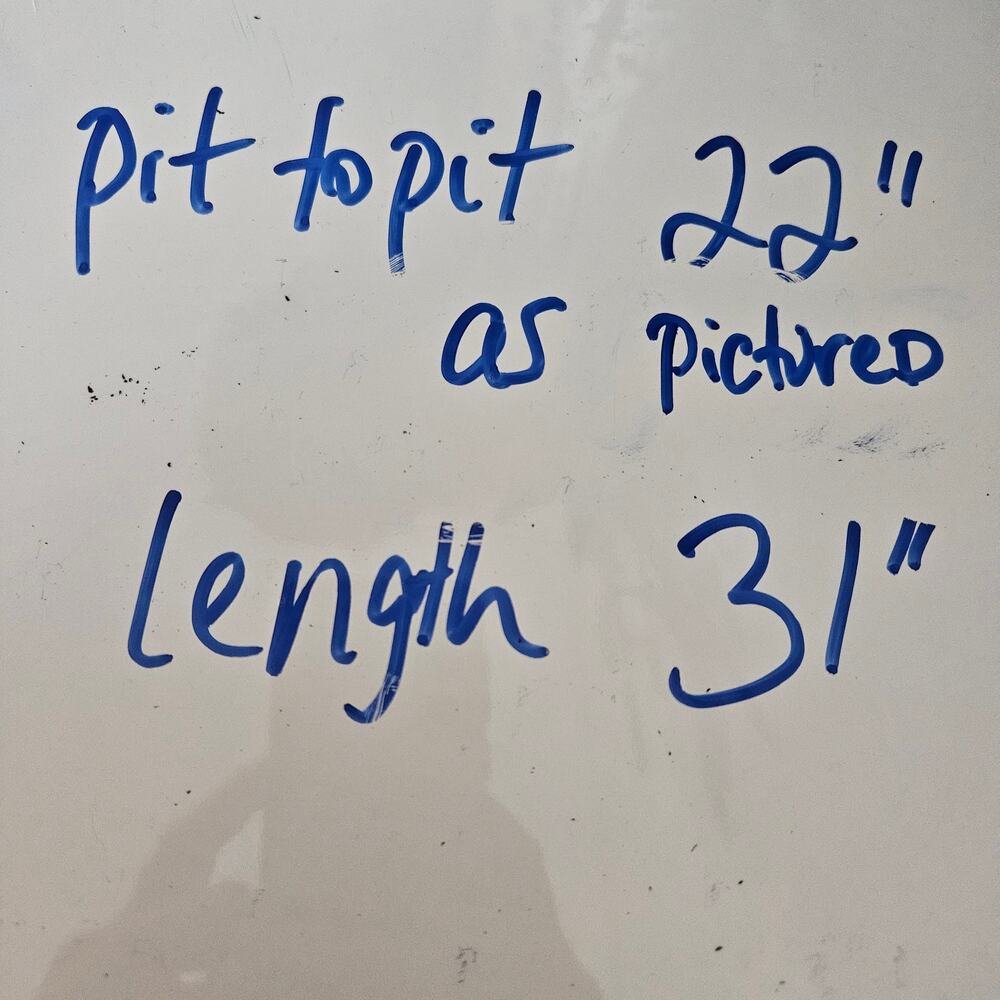 pit to pit 22"
as pictured
length 31"